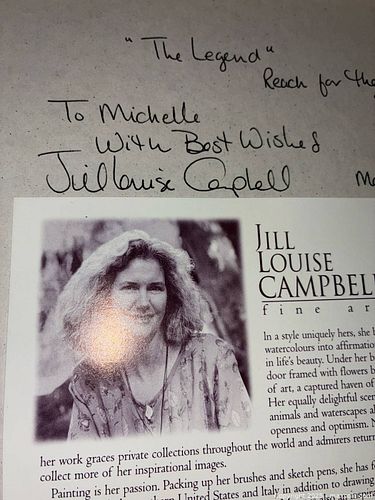 "The Legend"
Reach for the
To Michelle
With Best Wishes
Jill Louise Campbell
JILL
LOUISE
CAMPBEL
fine ar
In a style uniquely hers, she
watercolours into affirmation
in life's beauty. Under her b
door framed with flowers b
of art, a captured haven of
Her equally delightful scen
animals and waterscapes a
openness and optimism.
her work graces private collections throughout the world and admirers return
collect more of her inspirational images.
Painting is her passion. Packing up her brushes and sketch pens, she has
United States and Italy in addition to drawing
also an inspi